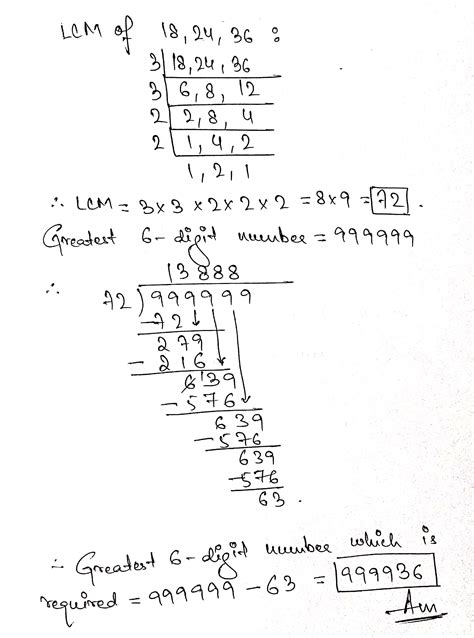 LCM of 18, 24, 36 :
3 | 18, 24, 36
3 | 6, 8, 12
2 | 2, 8, 4
2 | 1, 4, 2
1, 2, 1
∴ LCM = 3 × 3 × 2 × 2 × 2 = 8 × 9 = 72 .
Greatest 6-digit number = 999999
13888
∴ 72 ) 999999
-72
279
- 216
639
- 576
639
- 576
639
- 576
63 .
∴ Greatest 6-digit number which is
required = 999999 - 63 = 999936
Ans